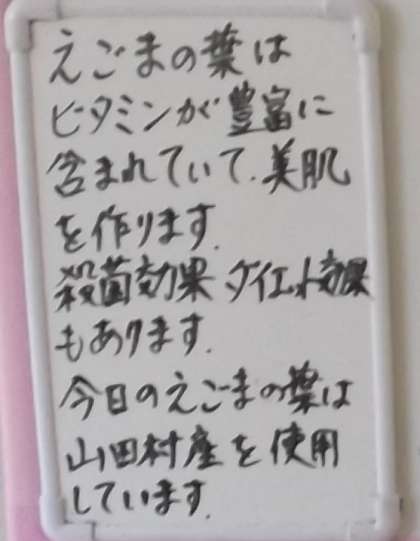 えごまの葉は
ビタミンが豊富に
含まれていて、美肌
を作ります.
殺菌効果、ダイエット効果
もあります.
今日のえごまの葉は
山田村産を使用
しています.